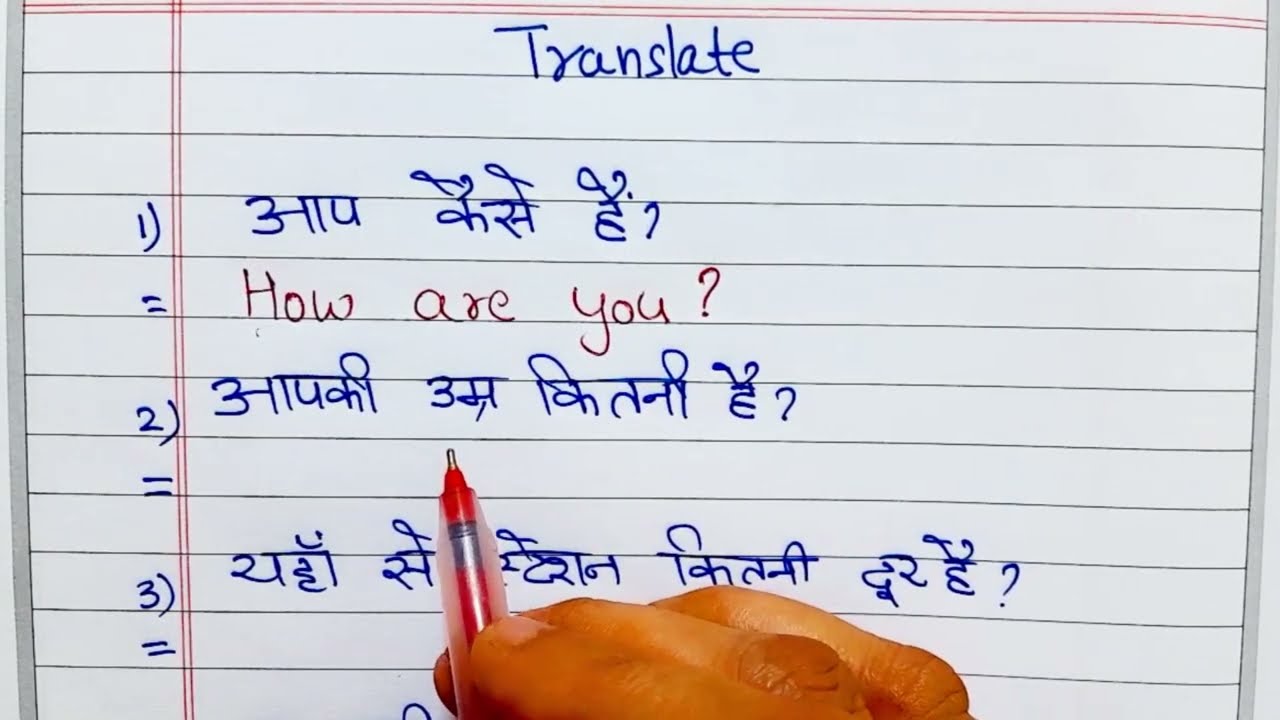 Translate
1) आप कैसे हैं?
= How are you?
2) आपकी उम्र कितनी है?
=
3) यहाँ से स्टेशन कितनी दूर है?
=